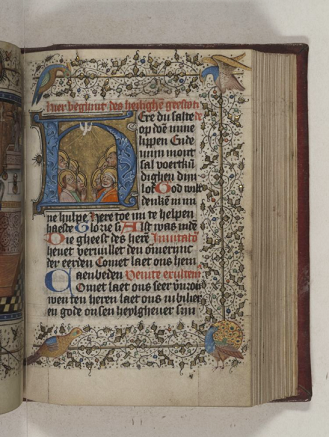 Hier beghint des heilighē gheestē
Ere du salte
op doē mine
lippen Ende
mijn mont
sal voertkū
dighen dijn
lof God wilt
denkē in mi
ne hulpe Here toe mi te helpen
haeste Glorie si Alst was inde
Die gheest des herē Inuitatō
heuet veruullet den ommerinc
der eerden Comet laet ons hem
aenbeden Venite exultem
Comet laet ons
den heren laet ons
en gode onsen heylgheuer